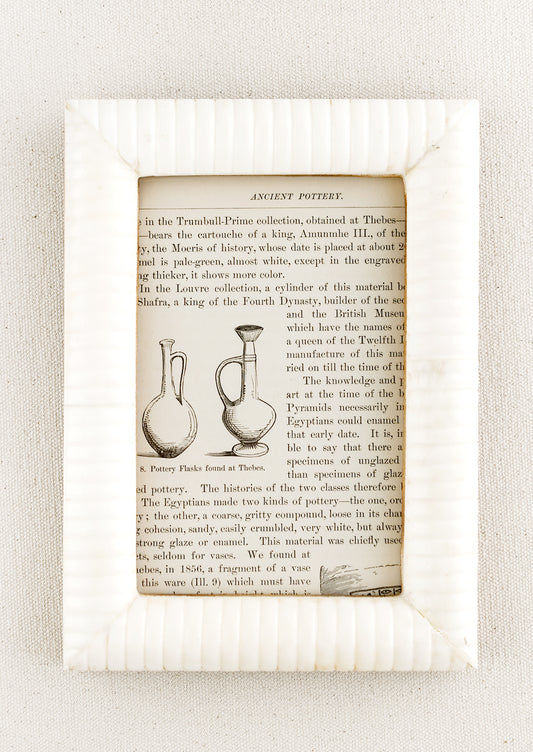 ANCIENT POTTERY.
e in the Trumbull-Prime collection, obtained at Thebes—
—bears the cartouche of a king, Amunmhe III., of the
ty, the Moeris of history, whose date is placed at about 2
mel is pale-green, almost white, except in the engraved
ng thicker, it shows more color.
In the Louvre collection, a cylinder of this material be
Shafra, a king of the Fourth Dynasty, builder of the sec
and the British Museu
which have the names of
a queen of the Twelfth I
manufacture of this ma
ried on till the time of th
The knowledge and p
art at the time of the b
Pyramids necessarily in
Egyptians could enamel
that early date. It is, in
ble to say that there a
specimens of unglazed
than specimens of glaz
8. Pottery Flasks found at Thebes.
ed pottery. The histories of the two classes therefore
The Egyptians made two kinds of pottery—the one, ord
y; the other, a coarse, gritty compound, loose in its char
g cohesion, sandy, easily crumbled, very white, but alway
strong glaze or enamel. This material was chiefly used
ets, seldom for vases. We found at
hebes, in 1856, a fragment of a vase
this ware (Ill. 9) which must have